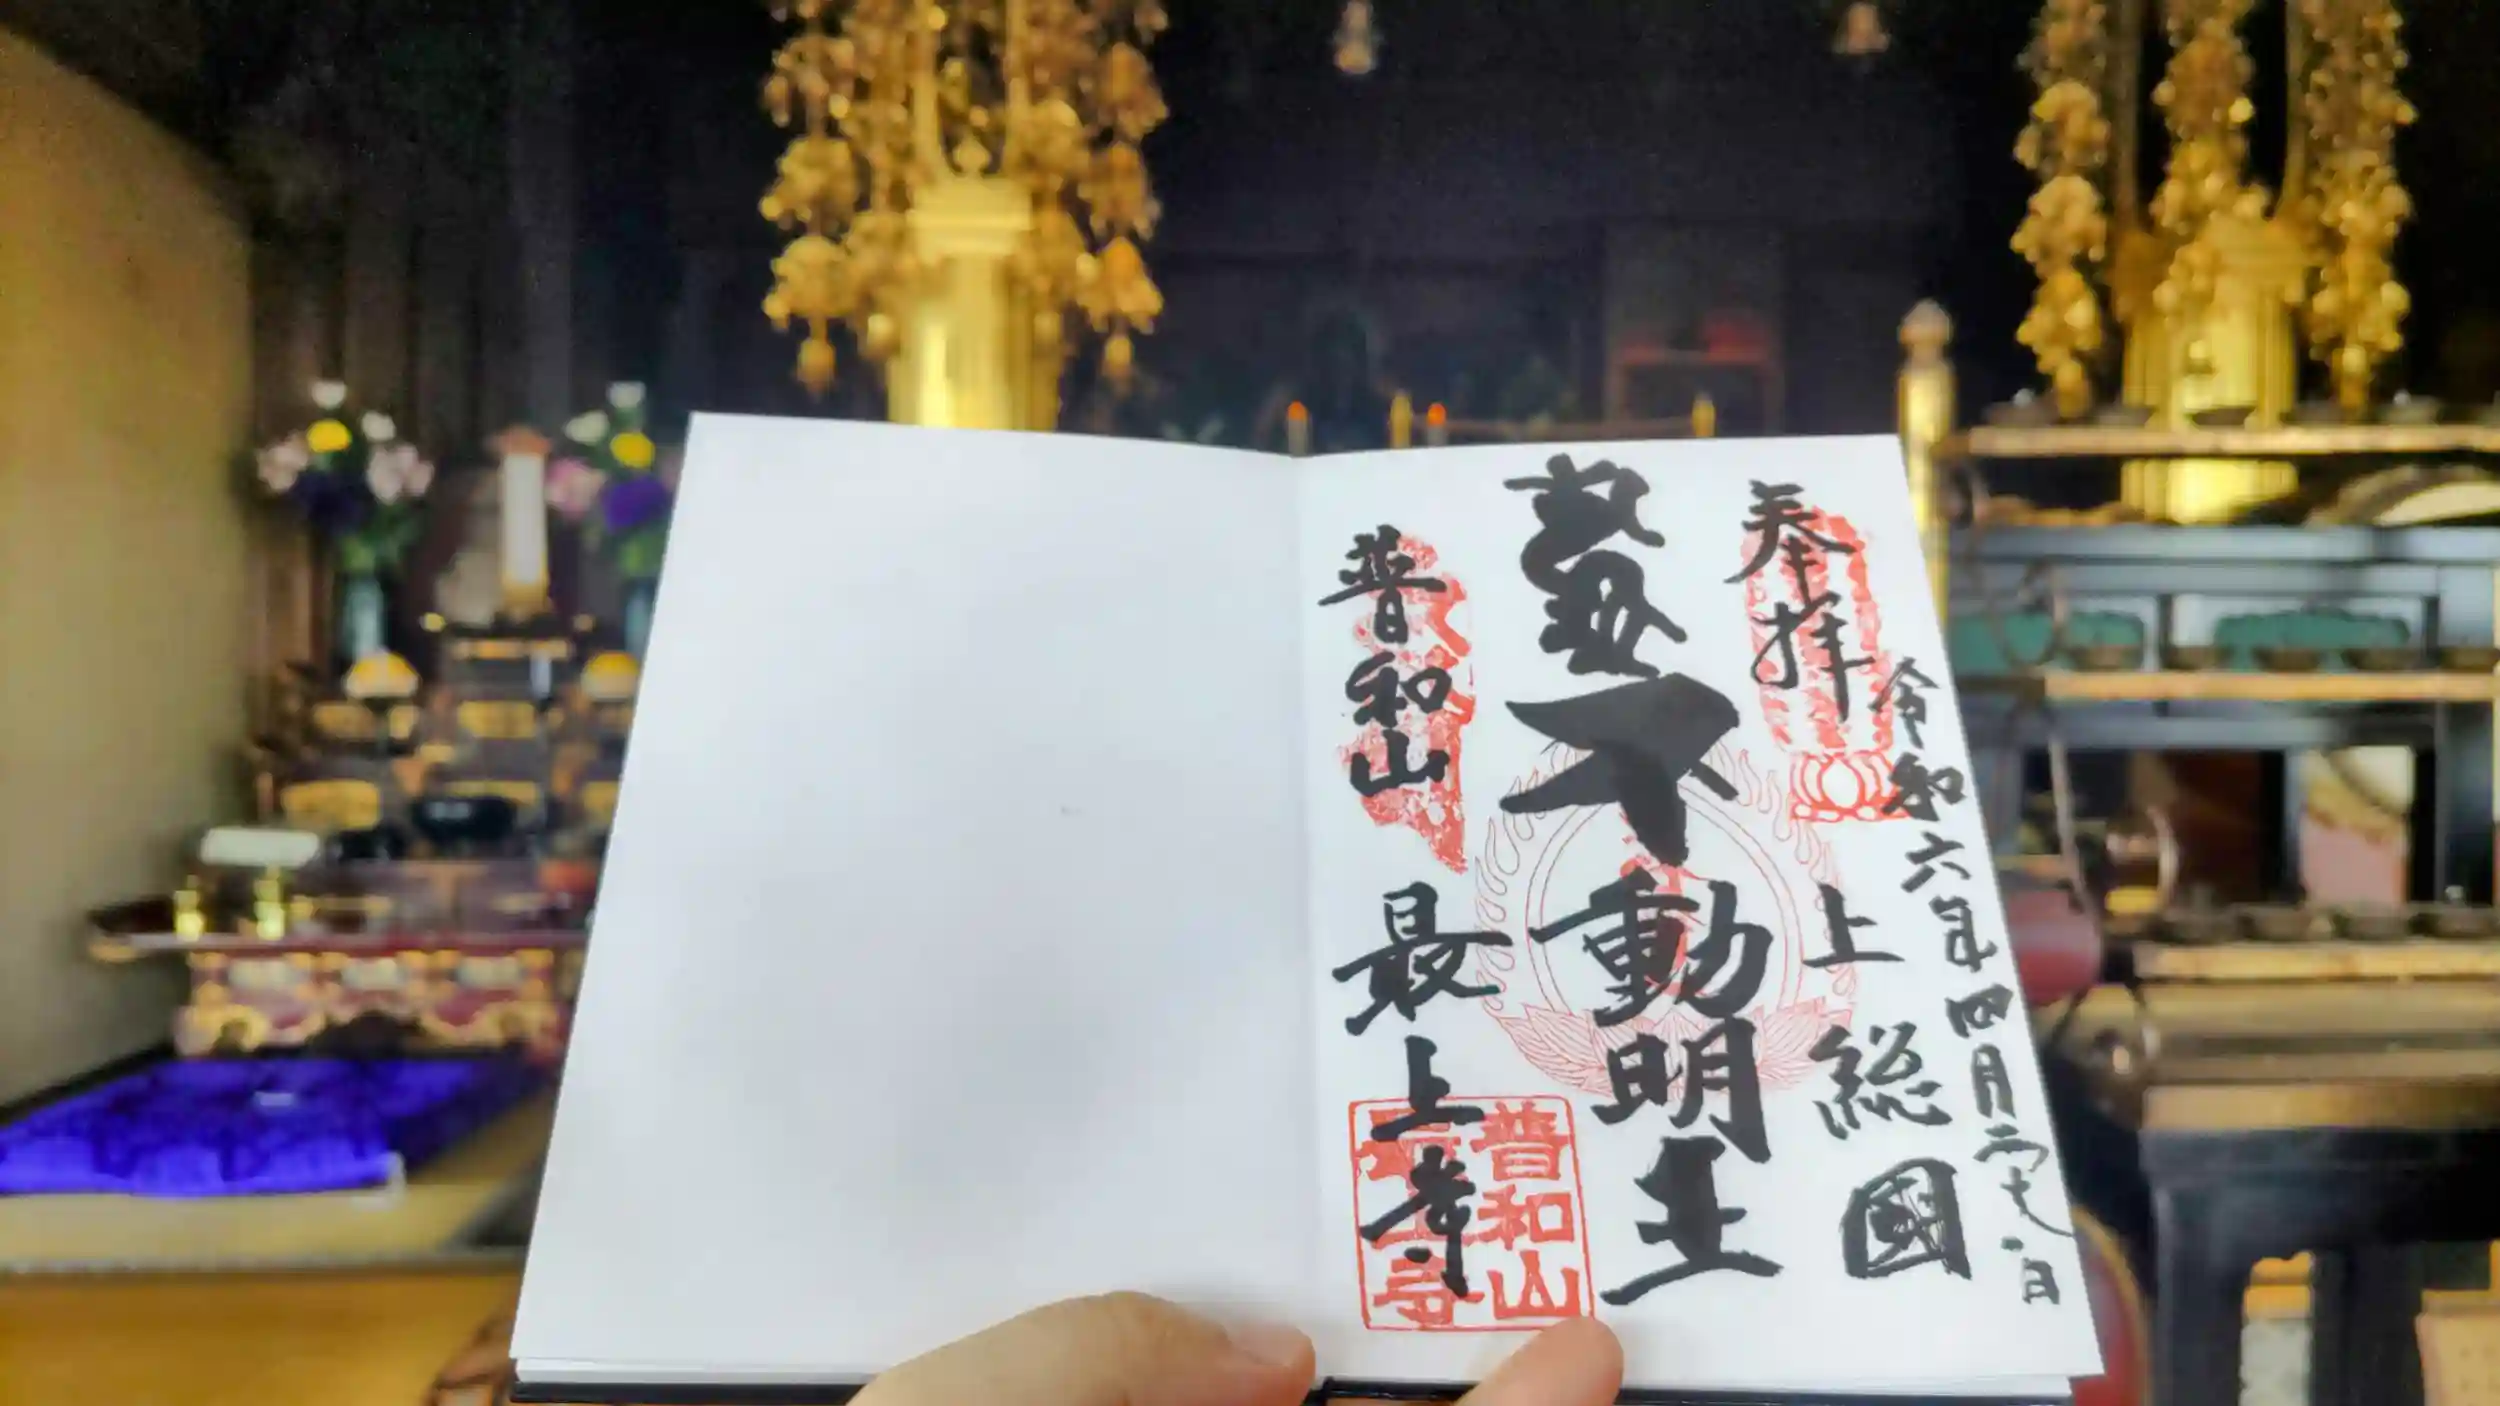 令和六年四月二十七日
奉拝
上総國
不動明王
普和山
最上寺
普和山
最上寺